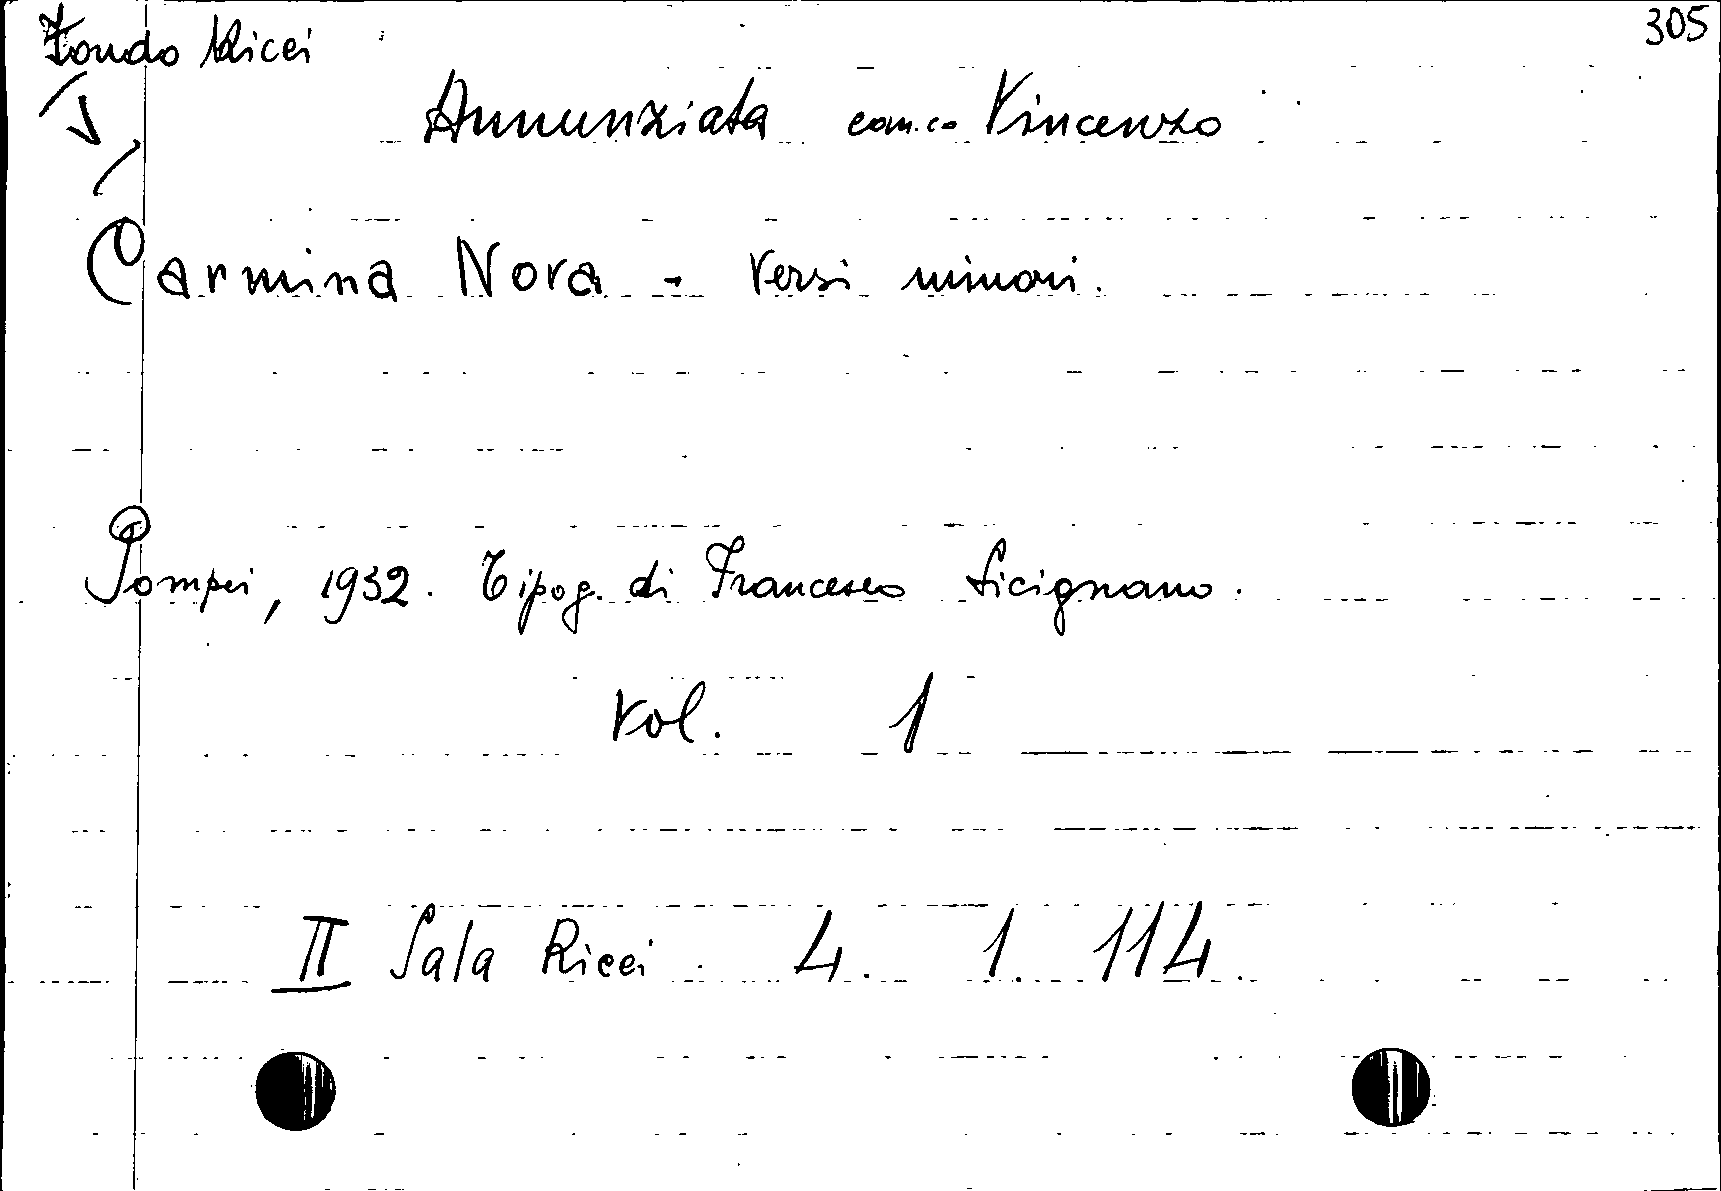 Fondo Ricci
305
Annunziata can.co Vincenzo
Carmina Nova - Versi minori.
Pompei, 1932. Tipog. di Francesco Sicignano.
Vol. 1
II Sala Ricci 4. 1. 114.